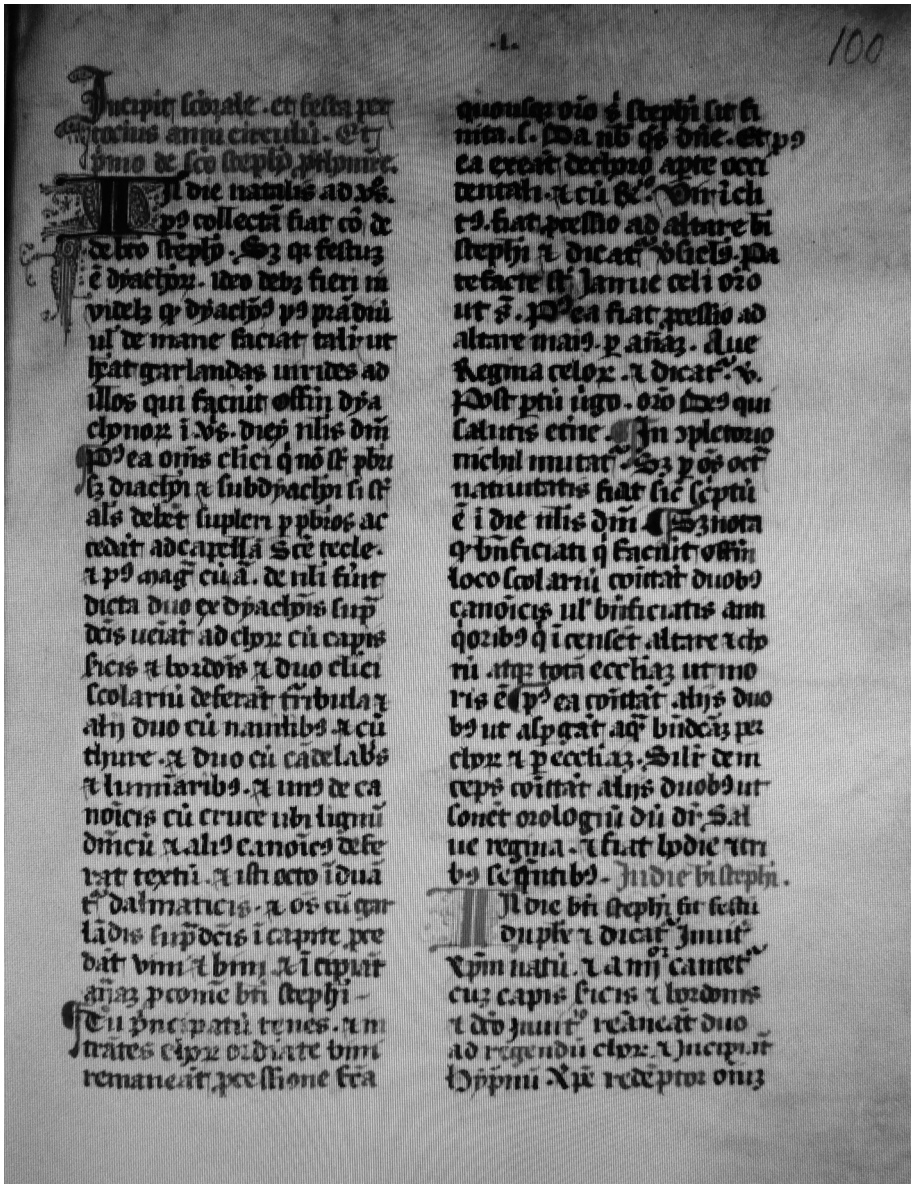 .L.
100
Incipit sc̄orale . et festa per
tocius anni circulū . Et
p̄mo de sc̄o steph̄o
In die natalis ad vs̄.
pꝰ collectā fiat cō de
de bt̄o steph̄o . Sꝫ qꝛ festuꝫ
ē dyachōꝝ . ideo debꝫ fieri in
ul̄ de mane faciāt tali ut
h̄eāt garlandas uirides ad
illos qui faciūt offm̄ dya
chonoꝝ ī vs̄ . diei nl̄is dn̄i
Pꝰ ea om̄s clīci q̇ nō st̄ pb̄ri
sꝫ diachoi ⁊ subdyachoi si st̄
als̄ debēt supleri ꝑ pb̄ros ac
cedāt ad capellā Sc̄e tecle .
⁊ pꝰ maḡt cū a͞ . de nl̄i fūit
dicta duo ex dyachōis sup̄
dc̄is ueīat ad choꝝ cū capis
sicis ⁊ bordōis ⁊ duo clīci
scolariū deferāt t̄ribula ⁊
alij duo cū nauitibꝰ ⁊ cū
thure . ⁊ duo cū cādelabs̄
⁊ lumīaribꝰ . ⁊ unꝰ de ca
noīcis cū cruce ubi lignū
dn̄icū ⁊ aliꝰ canoīcꝰ defe
rat textū . ⁊ isti octo īduā
t̄ dalmaticis . ⁊ oēs cū gar
lādis sup̄dc̄is ī capite p̄ce
dāt bini ⁊ bini ⁊ īcipiāt
an̄aꝫ ꝑ comīe bt̄i stephi
Tu p̄ncipatū tenes . ⁊ in
trātes choꝝ ordīate bini
remaneāt ꝓcessione fc̄a
quousqꝫ or̄o s̄ stephi sit fi
nita . s . Da nb̄ qs̄ dn̄e . Et pꝰ
ea exeāt de choro a ꝑte occi
dentali . ⁊ cū ℟ . Vir ich
rꝰ . fiat ꝓcessio ad altare bt̄i
stephi ⁊ dicat̄ v̄siclꝰ . Pa
tefacte st̄ Ianue celi or̄o
ut s̄ . Pꝰ ea fiat ꝓcessio ad
altare maiꝰ . ꝑ an̄aꝫ . Aue
Regina celoꝝ . ⁊ dicat̄ . v̄ .
Post ꝑtū ūgo . or̄o Deꝰ qui
salutis et̄ne . In ꝯpletorio
nichil mutat̄ . Sꝫ ꝑ oēs oct̄
natiuitatis fiat sic̄ sc̄ptū
ē ī die nl̄is dn̄i Sꝫ nota
qꝫ bn̄ficiati q̇ faciūt offm̄
loco scolariū comittāt duobꝰ
canoīcis ul̄ bn̄ficiatis anti
q̇oribꝰ q̇ īcensēt altare ⁊ cho
rū atqꝫ totā ecclīaꝫ ut mo
ris ē pꝰ ea comittāt alijs duo
bꝰ ut aspgāt aq̄ bn̄dcāꝫ per
choꝝ ⁊ ꝑ ecclīaꝫ . Silr̄ dein
ceps comittāt alijs duobꝰ ut
sonēt orologiū dū dr̄ . Sal
ue regina . ⁊ fiat hodie ⁊ tri
bꝰ seqn̄tibꝰ . In die bt̄i stephi .
In die bt̄i stephi sit festū
duplex ⁊ dicat̄ Inuit̄
Xp̄m natū . ⁊ a iiijᵒʳ cantet̄
cuꝫ capis sicis ⁊ bordonis
⁊ dc̄o inuit̄ remaneāt duo
ad regendū choꝝ ⁊ incipiāt
hypmū . Xp̄e redēptor omīꝫ